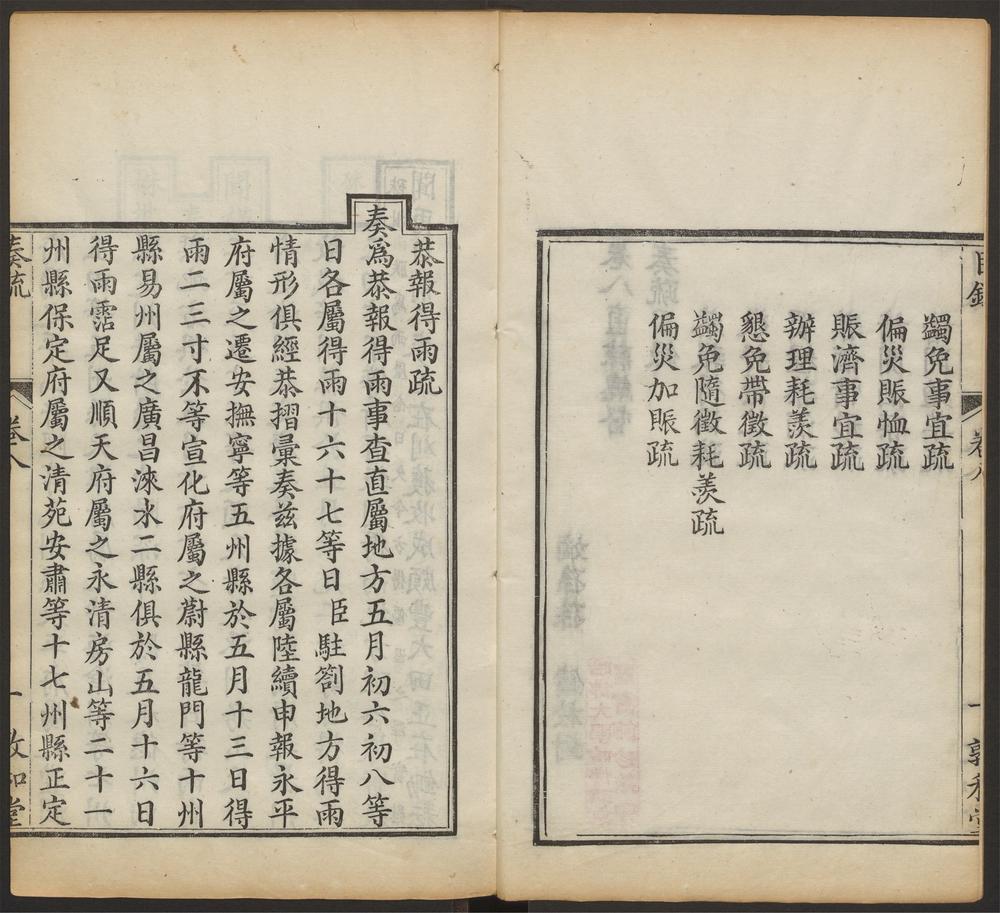 目錄 卷八 一 敦和堂
蠲免事宜疏
偏災賑恤疏
賑濟事宜疏
辦理耗羨疏
懇免帶徵疏
蠲免隨徵耗羨疏
偏災加賑疏
恭報得雨疏
奏爲恭報得雨事查直屬地方五月初六初八等
日各屬得雨十六十七等日臣駐劄地方得雨
情形俱經恭摺彙奏茲據各屬陸續申報永平
府屬之遷安撫寧等五州縣於五月十三日得
雨二三寸不等宣化府屬之蔚縣龍門等十州
縣易州屬之廣昌淶水二縣俱於五月十六日
得雨霑足又順天府屬之永清房山等二十一
州縣保定府屬之清苑安肅等十七州縣正定
奏疏 卷八 一 敦和堂